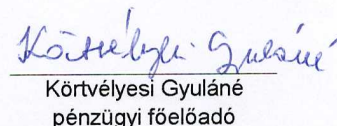 Körtvélyesi Gyuláné
Körtvélyesi Gyuláné
pénzügyi főelőadó